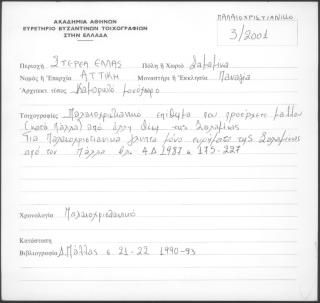 ΠΑΛΑΙΟΧΡΙΣΤΙΑΝΙΚΟ
ΑΚΑΔΗΜΙΑ ΑΘΗΝΩΝ
ΕΥΡΕΤΗΡΙΟ ΒΥΖΑΝΤΙΝΩΝ ΤΟΙΧΟΓΡΑΦΙΩΝ
ΣΤΗΝ ΕΛΛΑΔΑ
3/2001
Περιοχή ΣΤΕΡΕΑ ΕΛΛΑΣ Πόλη ή Χωριό Σαλαμίνα
Νομός ή Επαρχία ΑΤΤΙΚΗ Μοναστήρι ή Εκκλησία Παναγία
Αρχιτεκτ. τύπος
Τοιχογραφίες Παλαιοχριστιανικό επίθημα που προέρχεται μάλλον
(κατά Πάλλα) από άλλη θέση της Σαλαμίνας
Για Παλαιοχριστιανικά γλυπτά μόνο ευρήματα της Σαλαμίνας
από τον Πάλλα βλ. ΑΔ 1987 σ 175-227
Χρονολογία Παλαιοχριστιανικό
Κατάσταση
Βιβλιογραφία Δ. Πάλλας σ 21-22 1990-93